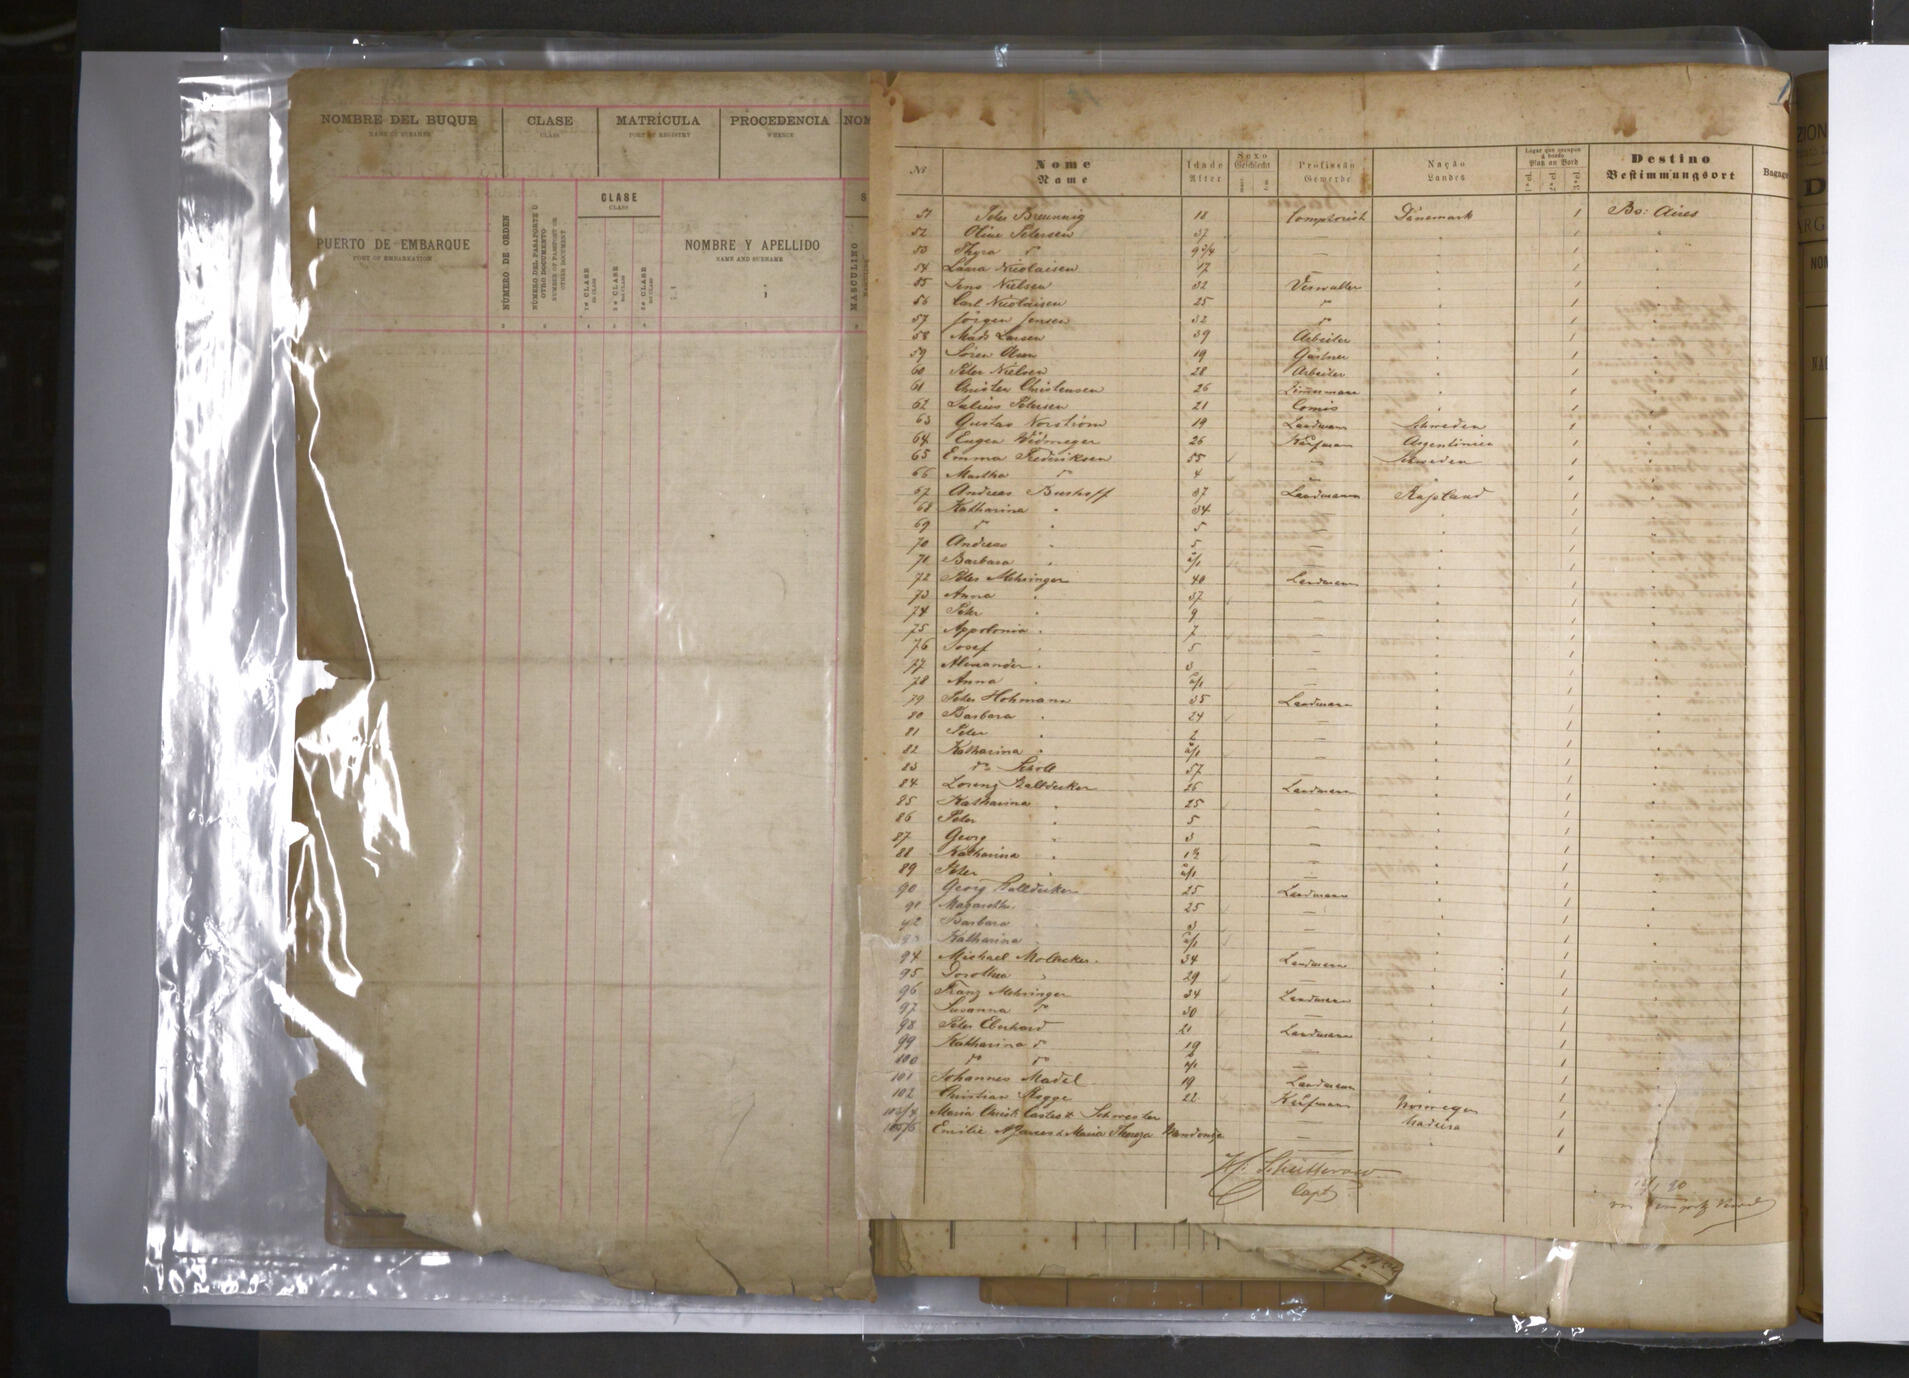 NOMBRE DEL BUQUE
NAME OF STEAMER
CLASE
CLASS
MATRÍCULA
PORT OF REGISTRY
PROCEDENCIA
WHENCE
NOM
PUERTO DE EMBARQUE
PORT OF EMBARKATION
NÚMERO DE ORDEN
NÚMERO DEL PASAPORTE Ú
OTRO DOCUMENTO
NUMBER OF PASSPORT OR
OTHER DOCUMENT
CLASE
CLASS
1ª CLASE
2ª CLASE
3ª CLASE
NOMBRE Y APELLIDO
NAME AND SURNAME
S
MASCULINO
Nº
Nome
Name
Idade
Alter
Sexo
Geschlecht
Profissão
Gewerbe
Nação
Landes
Logar que occupa
á bordo
Platz an Bord
1ª cl. 2ª cl. 3ª cl.
Destino
Bestimmungsort
Bagage
51 Peter Breunnig 18 Comptorist Dänemark 1 Bs: Aires
52 Oline Petersen 37 — " 1 "
53 Thyra do 9 3/4 — " 1 "
54 Laura Nicolaisen 17 — " 1 "
55 Jens Nielsen 32 Verwalter " 1 "
56 Carl Nicolaisen 25 do " 1 "
57 Jörgen Jensen 32 do " 1 "
58 Mads Larsen 39 Arbeiter " 1 "
59 Sören Olsen 19 Gärtner " 1 "
60 Peter Nielsen 28 Arbeiter " 1 "
61 Christen Christensen 26 Zimmermann " 1 "
62 Julius Petersen 21 Comis " 1 "
63 Gustav Norström 19 Landmann Schweden 1 "
64 Eugen Widmeyer 26 Kaufmann Argentinien 1 "
65 Emma Frederiksen 55 — Schweden 1 "
66 Martha do 4 — " 1 "
67 Andreas Bushoff 37 Landmann Rußland 1 "
68 Katharina " 34 — " 1 "
69 do " 5 — " 1 "
70 Andreas " 5 — " 1 "
71 Barbara "  — " 1 "
72 Peter Mehringer 40 Landmann " 1 "
73 Anna " 37 — " 1 "
74 Peter " 9 — " 1 "
75 Appolonia " 7 — " 1 "
76 Josef " 5 — " 1 "
77 Alexander " 3 — " 1 "
78 Anna "  — " 1 "
79 Peter Hohmann 35 Landmann " 1 "
80 Barbara " 24 — " 1 "
81 Peter " 2 — " 1 "
82 Katharina "  — " 1 "
83 do Scholl 57 — " 1 "
84 Lorenz Balldecker 26 Landmann " 1 "
85 Katharina " 25 — " 1 "
86 Peter " 5 — " 1 "
87 Georg " 3 — " 1 "
88 Katharina " 1½ — " 1 "
89 Peter "  — " 1 "
90 Georg Balldecker 25 Landmann " 1 "
91 Magaretha 25 — " 1 "
92 Barbara " 3 — " 1 "
93 Katharina "  — " 1 "
94 Michael Molleker 34 Landmann " 1 "
95 Dorothea " 29 — " 1 "
96 Franz Mehringer 34 Landmann " 1 "
97 Susanna do 30 — " 1 "
98 Peter Eberhard 21 Landmann " 1 "
99 Katharina do 19 — " 1 "
100 do do  — " 1 "
101 Johannes Madel 19 Landmann " 1 "
102 Christian Rogge 22 Kaufmann Norwegen 1 "
103/4 Maria Christ. Castro & Schwester — Madeira 1
105/6 Emilie A. James & Maria Thereza Mendonça — " 1
Capt.